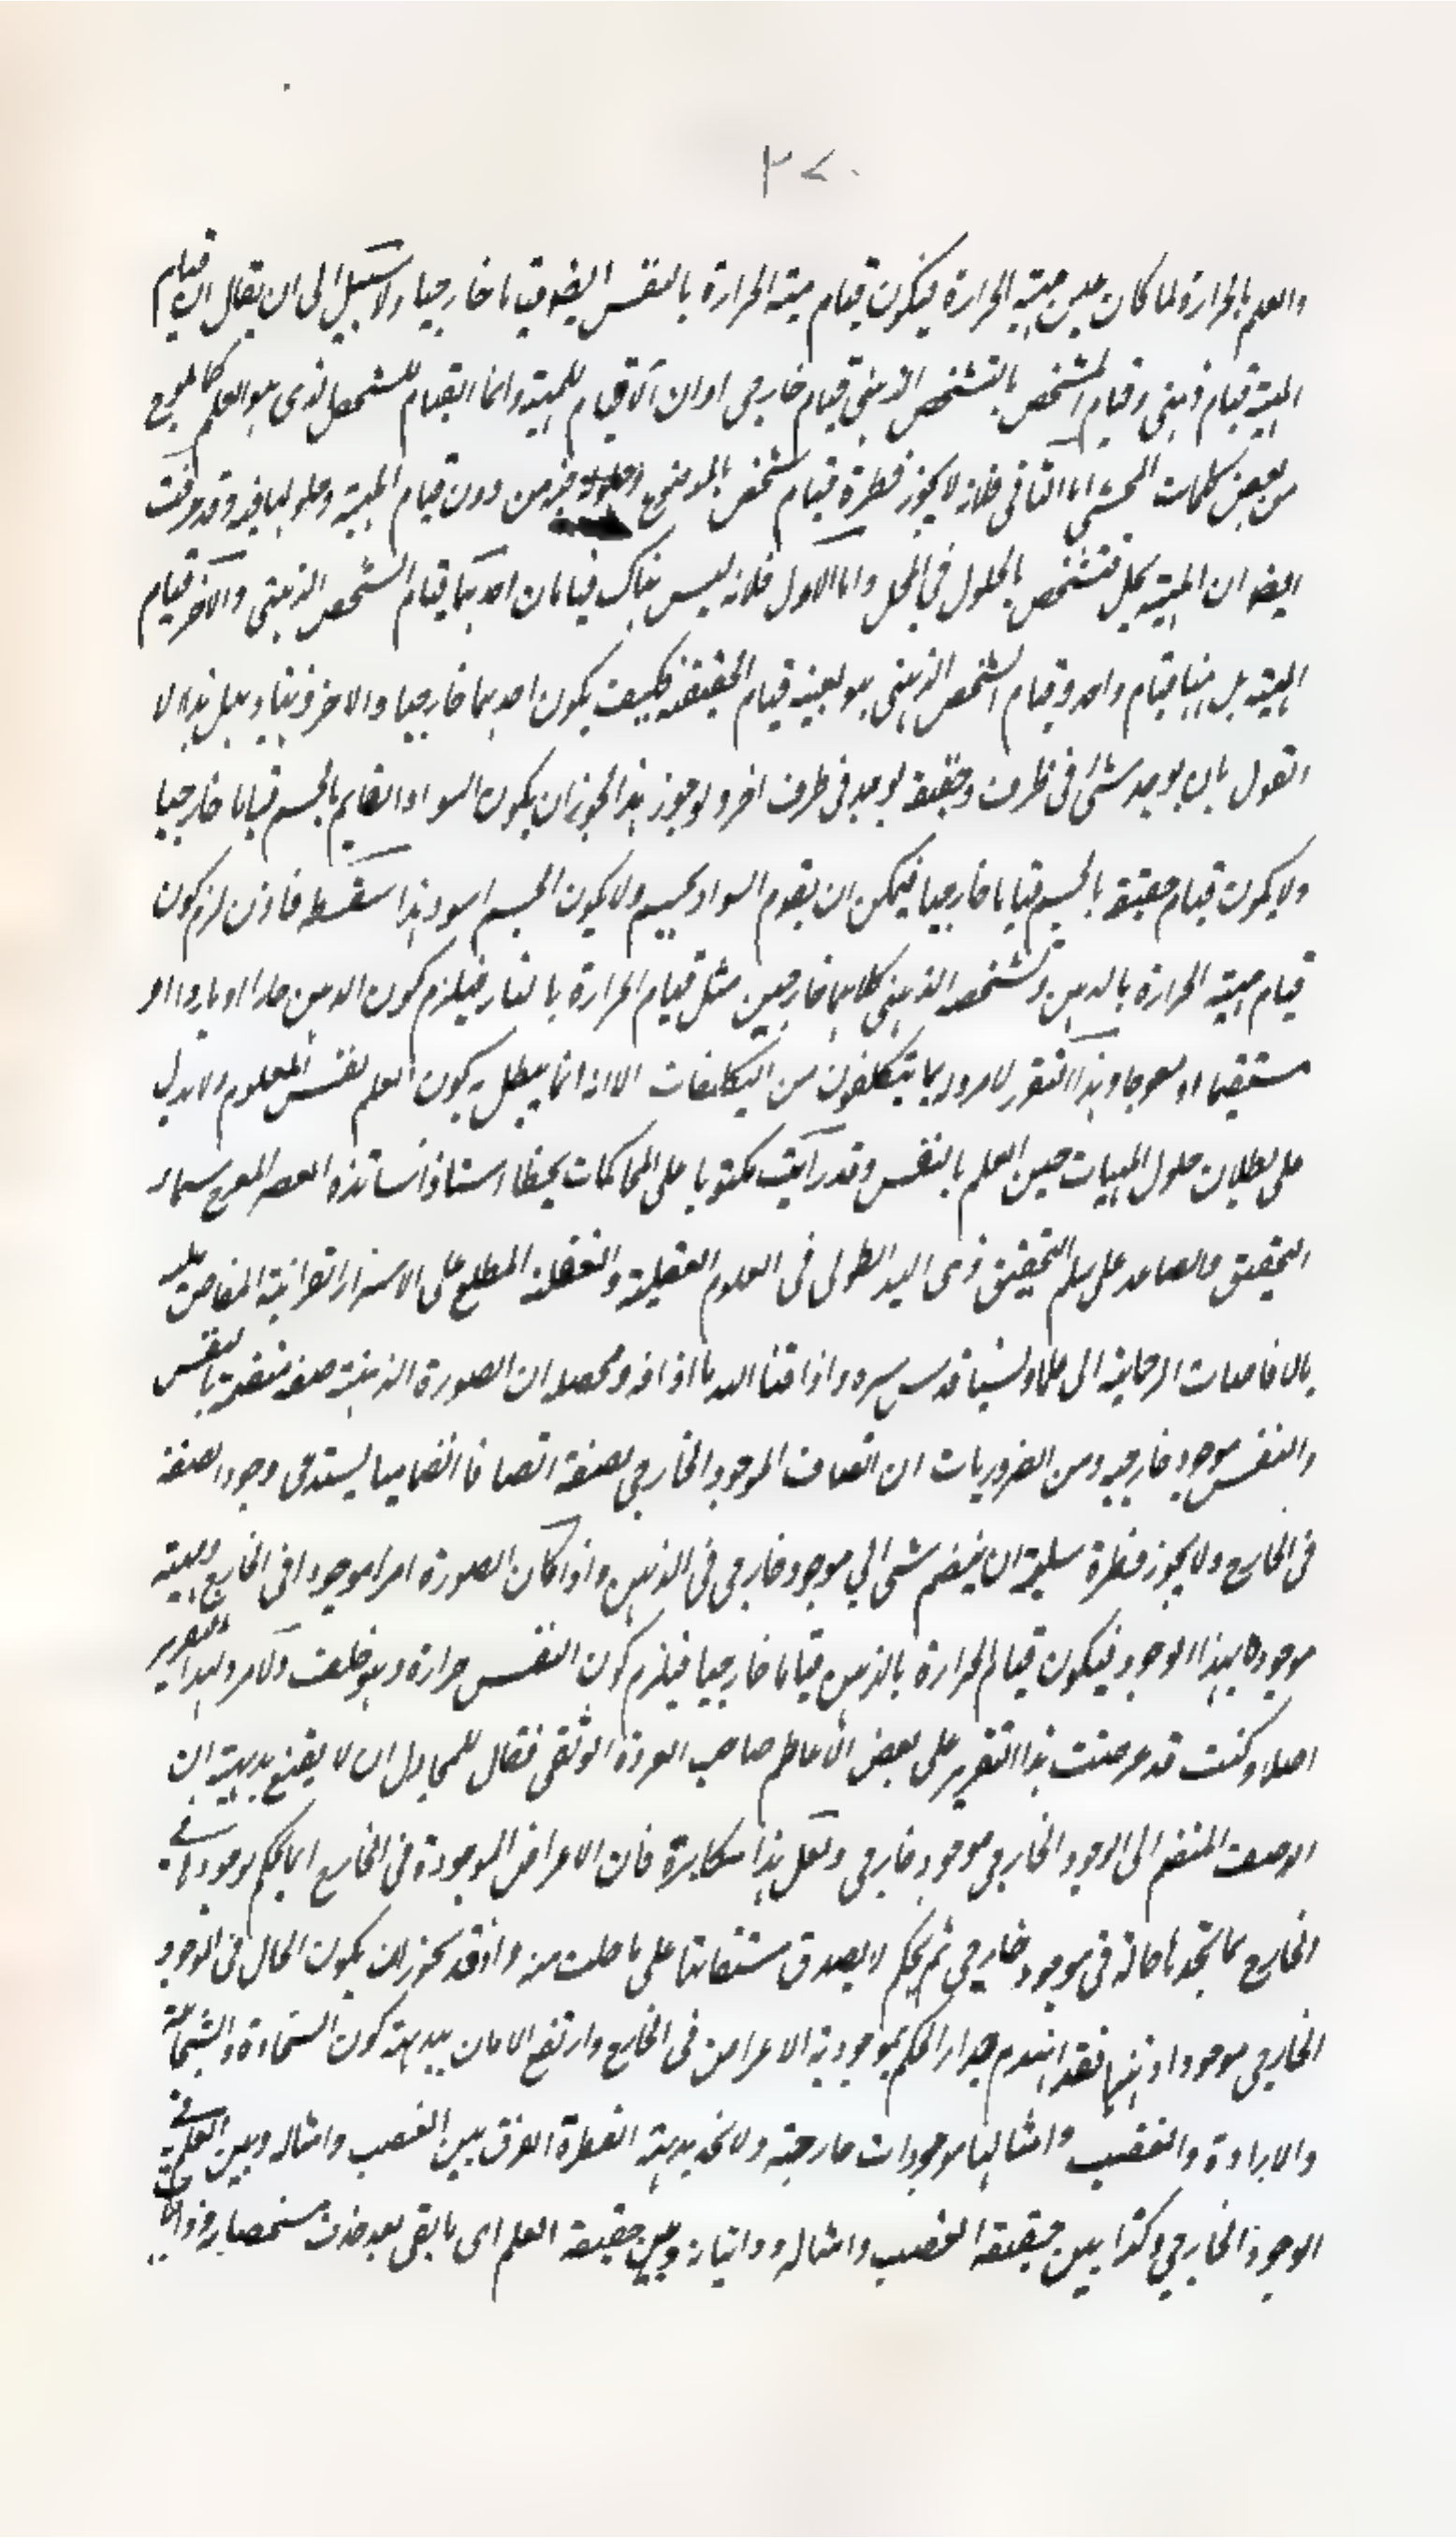 ٢٧٠
والعلم بالحرارة لما كان عين مهية الحرارة فيكون قيام مهية الحرارة بالنفس ايضو قياما خارجيا ولا سبيل الى ان يقال ان قيام
المهية قيام ذهنى وقيام الشخص بالتشخص الذهنى قيام خارجى او ان لا قيام للمهية وانما القيام للشخص الذى هو العلم كما يلوح
من بعض كلمات المحشى اما الثانى فلانه لا يجوز فطرة قيام شخص بالموضوع وحلوله فيه من دون قيام المهية وحلولها فيه وقد عرفت
ايضو ان المهية تحل فتشخص بالحلول فى المحل واما الاول فلانه ليس هناك قيامان احدهما قيام الشخص الذهنى والآخر قيام
المهية بل ههنا قيام واحد وقيام الشخص الذهنى هو بعينه قيام الحقيقة فكيف يكون احدهما خارجيا والاخر ذهنيا وهل هذا الا
القول بان يوجد شئ فى ظرف وحقيقته يوجد فى ظرف اخر ولو جوز هذا لجوز ان يكون السواد القايم بالجسم قياما خارجيا
ولا يكون قيام حقيقته بالجسم قياما خارجيا فيمكن ان يقوم السواد بجسم ولا يكون الجسم اسود هذا سفسطة فاذن لزم كون
قيام مهية الحرارة بالذهن وتشخصه الذهنى كلاهما خارجيين مثل قيام الحرارة بالنار فيلزم كون الذهن حارا او باردا او
مستقيما او معوجا وهذا التقرير لا مرد له بما يتكلفون من التكلفات الا انه انما يبطل به كون العلم نفس المعلوم ولا يدل
على بطلان حلول المهيات حين العلم بالنفس وقد رأيت مكتوبا على المحاكمات بخط استاذ اساتذة العصر العروج سماء
التحقيق والصاعد على سلم التحقيق ذى اليد الطولى فى العلوم العقلية والنقلية المطلع على الاسرار القرانية المفاض عليه
بالافاضات الرحمانية قدس سره واذاقنا الله ما اذاقه ومحصله ان الصورة الذهنية صفة منضمة بالنفس
والنفس موجود خارجى ومن الضروريات ان اتصاف الموجود الخارجى بصفة اتصافا انضماميا يستدعى وجود الصفة
فى الخارج ولا يجوز فطرة سليمة ان ينضم شئ الى موجود خارجى فى الذهن واذا كان الصورة امرا موجودا فى الخارج ومهية
موجودة بهذا الوجود فيكون قيام الحرارة بالذهن قياما خارجيا فيلزم كون النفس حرارة وهو خلف ولا مرد لهذا التقرير
اصلا وكنت قد عرضت هذا التقرير على بعض الاعاظم صاحب العروة الوثقى فقال للمجادل ان لا يقنع ببديهية ان
الوصف المنضم الى الوجود الخارجى موجود خارجى ولعل هذا مكابرة فان الاعراض الموجودة فى الخارج انما يحكم بوجودها فى
الخارج بما تجدها حالة فى موجود خارجى ثم يحكم لا يصدق مشتقاتها على ما حلت فيه واذ قد يجوز ان يكون الحال فى الموجود
الخارجى موجودا ذهنيا فقد انهدم جدار الحكم بموجودية الاعراض فى الخارج وارتفع الامان ببديهة كون السخاوة والشجاعة
والارادة والغضب وامثالها موجودات خارجية ولا نجد بديهة الفطرة الفرق بين الغضب وامثاله وبين العلم فى
الوجود الخارجى وكذا بين حقيقة الغضب وامثاله وذاتياته وبين حقيقة العلم اى ما بقى بعد حذف مشخصاته وذاتياته